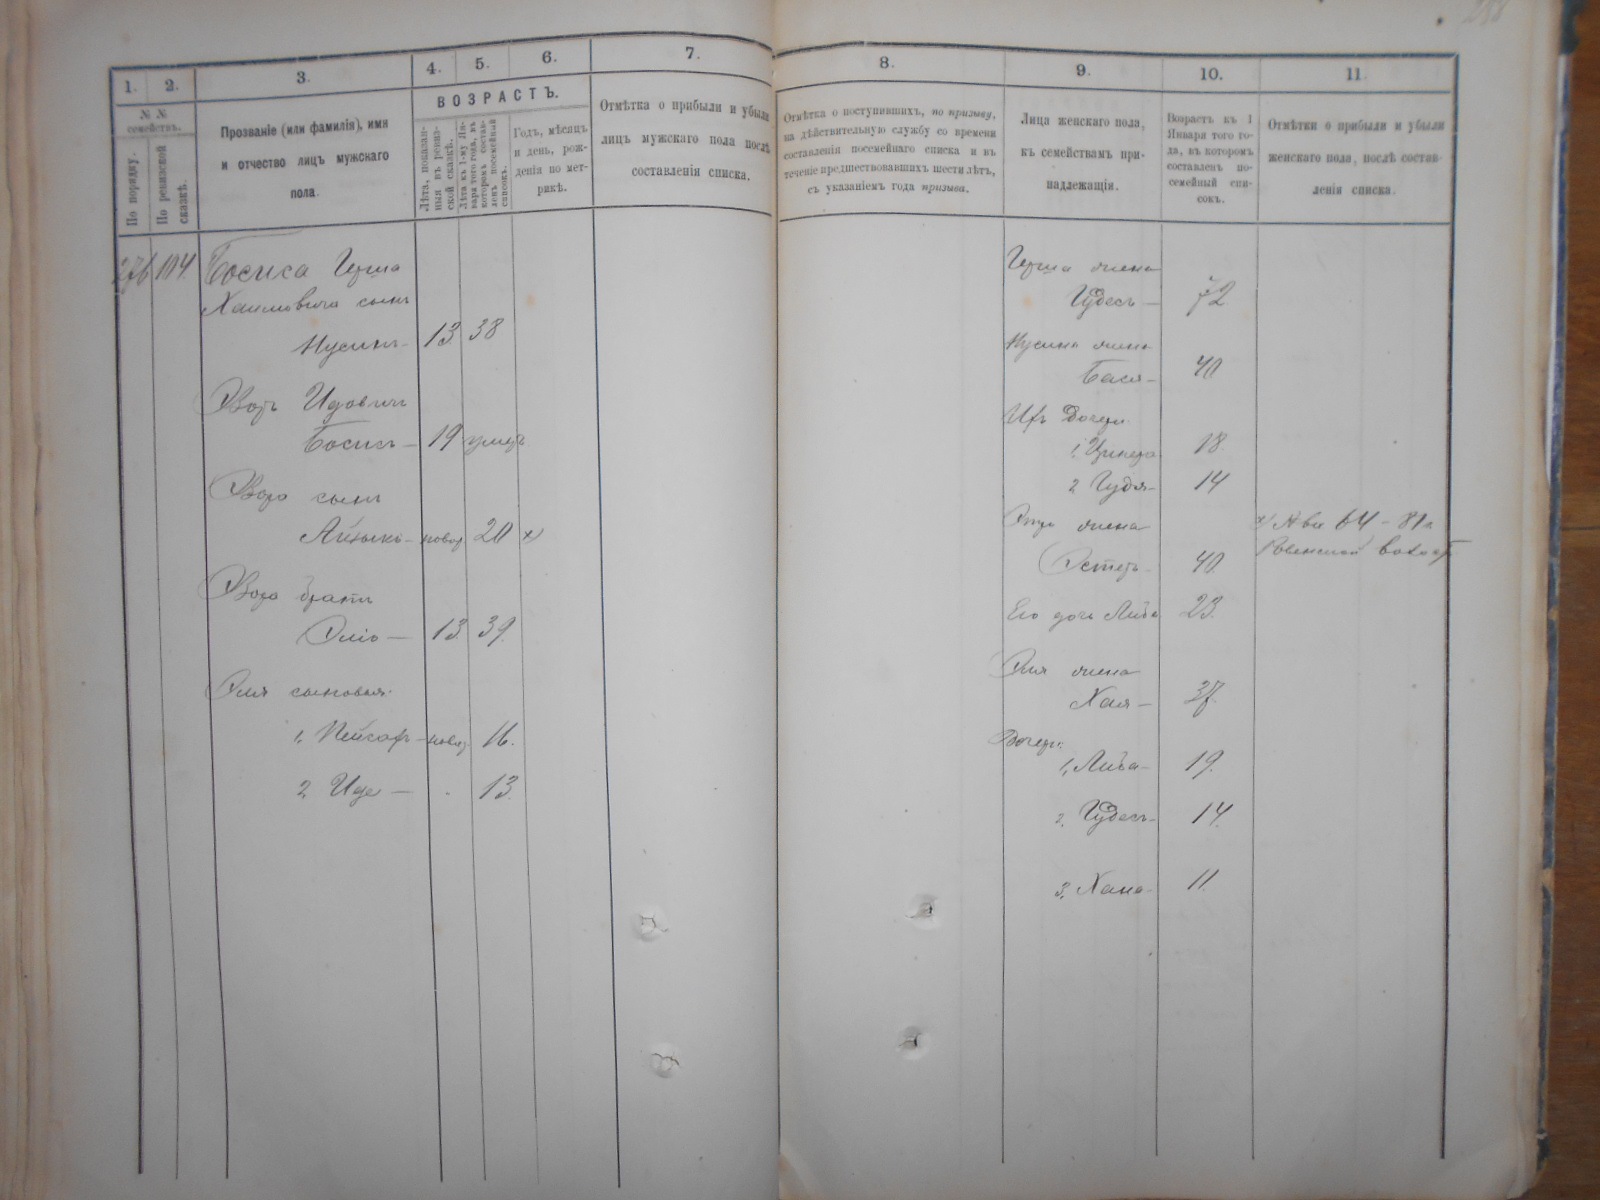 1.
2.
3.
4.
5.
6.
7.
8.
9.
10.
11.
№ №
семействъ.
По порядку.
По ревизской
сказкѣ.
Прозваніе (или фамилія), имя
и отчество лицъ мужскаго
пола.
ВОЗРАСТЪ.
Лѣта, показан-
ныя въ ревиз-
ской сказкѣ.
Лѣта къ 1-му Ян-
варя того года, въ
которомъ состав-
ленъ посемейный
списокъ.
Годъ, мѣсяцъ
и день, рож-
денія по мет-
рикѣ.
Отмѣтка о прибыли и убыли
лицъ мужскаго пола послѣ
составленія списка.
Отмѣтка о поступившихъ, по призыву,
на дѣйствительную службу со времени
составленія посемейнаго списка и въ
теченіе предшествовавшихъ шести лѣтъ,
съ указаніемъ года призыва.
Лица женскаго пола,
къ семействамъ при-
надлежащія.
Возрастъ къ 1
Января того го-
да, въ которомъ
составленъ по-
семейный спи-
сокъ.
Отмѣтки о прибыли и убыли
женскаго пола, послѣ состав-
ленія списка.
276 104. Босиса Герша
Хаимовича сынъ
Нусинъ - 13 38
Идовичъ
Босисъ - 19 умер.
сынъ
- новор 20 х)
братъ
Эліо - 13. 39.
Эля сыновья:
1. Пейсахъ - новор. 16.
2. Иде - 13.
Герша жена
Чудесъ - 72
Нусина жена
Бася - 40
Ихъ дочери
1. 18.
2. Чудя - 14
жена
Эстеръ - 40.
Его дочь Либа 23.
Эля жена
Хая - 37.
Дочери:
1. Либа - 19.
2. Чудесъ - 14.
3. Хана - 11.
х) 64 - 81